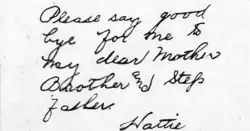 Please say good
bye for me to
my dear Mother
Brother and Step
father.
Hattie